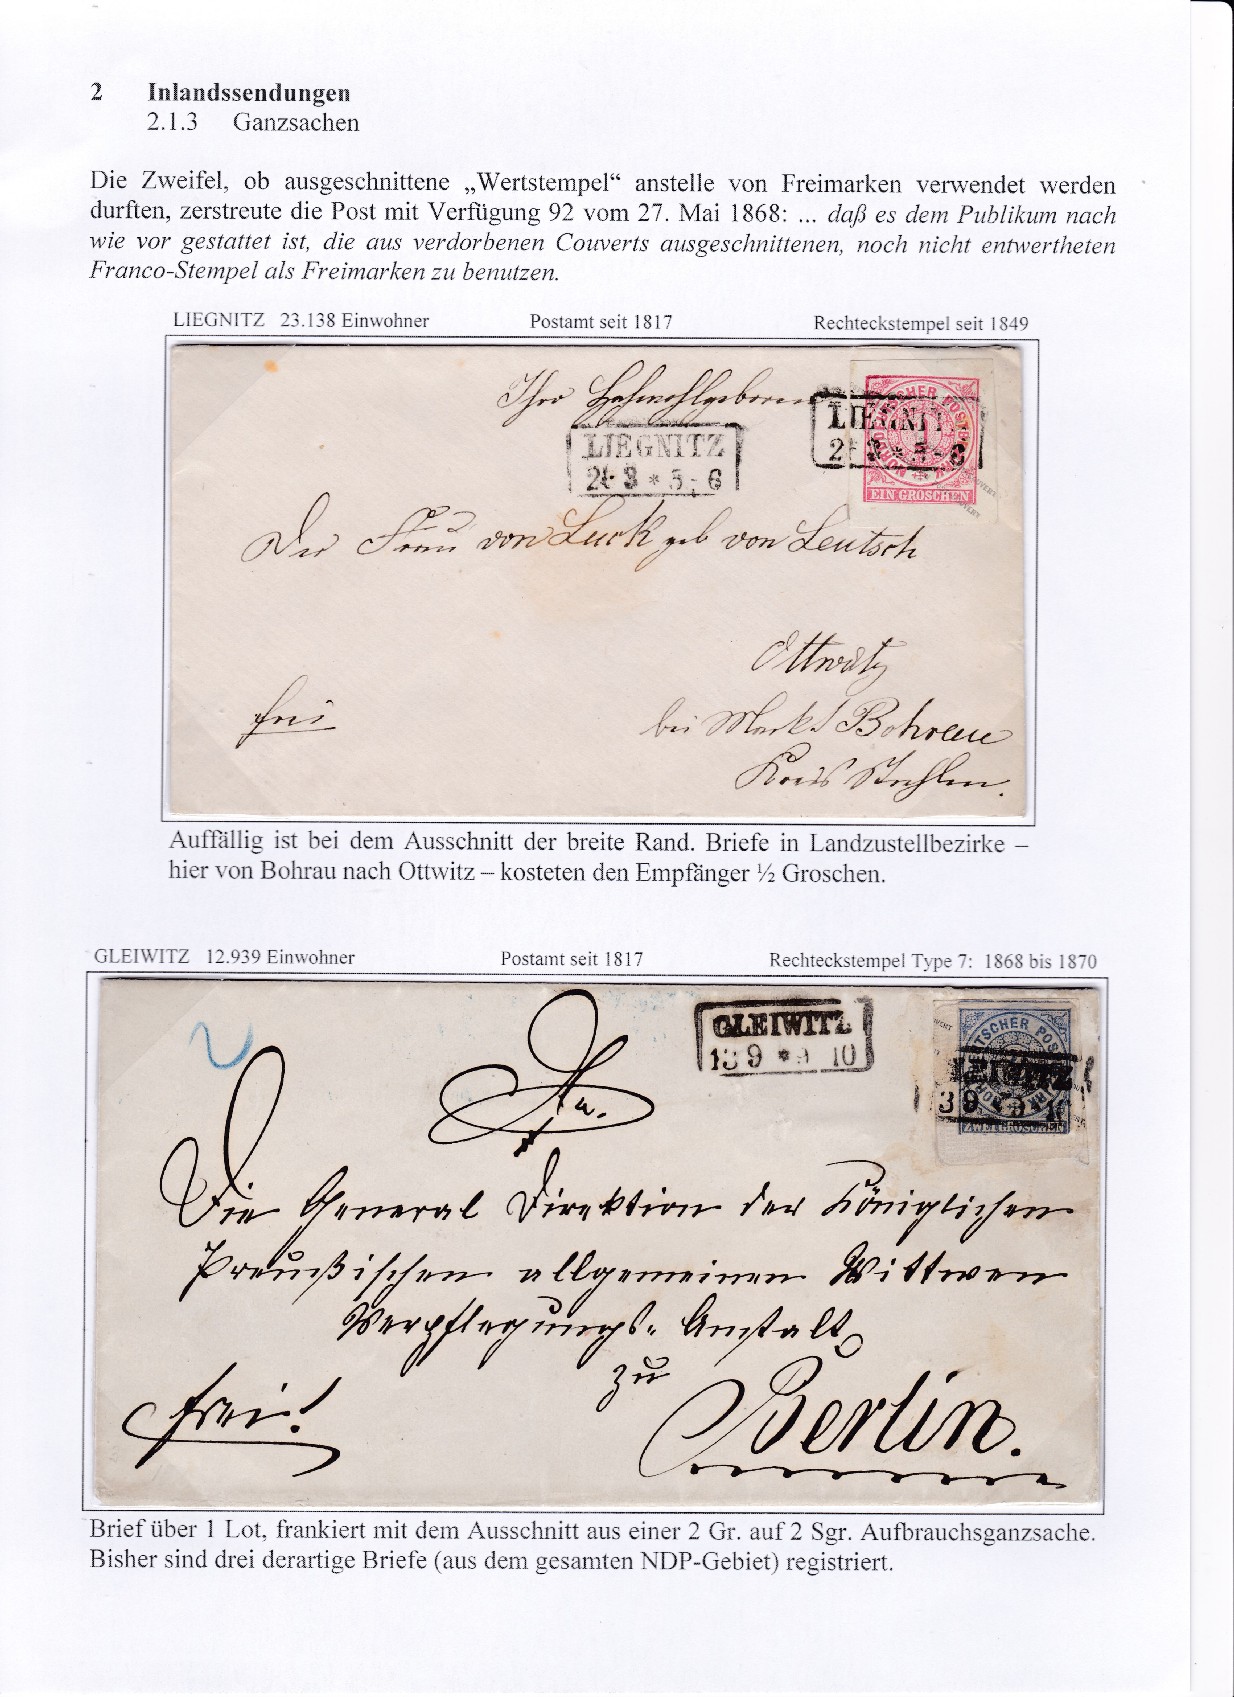 2 Inlandssendungen
2.1.3 Ganzsachen
Die Zweifel, ob ausgeschnittene „Wertstempel“ anstelle von Freimarken verwendet werden
durften, zerstreute die Post mit Verfügung 92 vom 27. Mai 1868: ... daß es dem Publikum nach
wie vor gestattet ist, die aus verdorbenen Couverts ausgeschnittenen, noch nicht entwertheten
Franco-Stempel als Freimarken zu benutzen.
LIEGNITZ 23.138 Einwohner Postamt seit 1817 Rechteckstempel seit 1849
Ihro Hochwohlgeboren
LIEGNITZ
3 * 5 - 6
LIEGNITZ
3 * 5 - 6
EIN GROSCHEN
Der Frau von Luck geb von Leutsch
Ottwitz
frei
bei Markt Bohrau
Kreis Strehlen.
Auffällig ist bei dem Ausschnitt der breite Rand. Briefe in Landzustellbezirke –
hier von Bohrau nach Ottwitz – kosteten den Empfänger ½ Groschen.
GLEIWITZ 12.939 Einwohner Postamt seit 1817 Rechteckstempel Type 7: 1868 bis 1870
2
An.
GLEIWITZ
13 9 * 9 10
LEIWITZ
3 9 * 9 - 10
ZWEI GROSCHEN
Die General Direktion der Königlichen
Preußischen allgemeinen Wittwen
Verpflegungs-Anstalt
zu
frei!
Berlin.
Brief über 1 Lot, frankiert mit dem Ausschnitt aus einer 2 Gr. auf 2 Sgr. Aufbrauchsganzsache.
Bisher sind drei derartige Briefe (aus dem gesamten NDP-Gebiet) registriert.